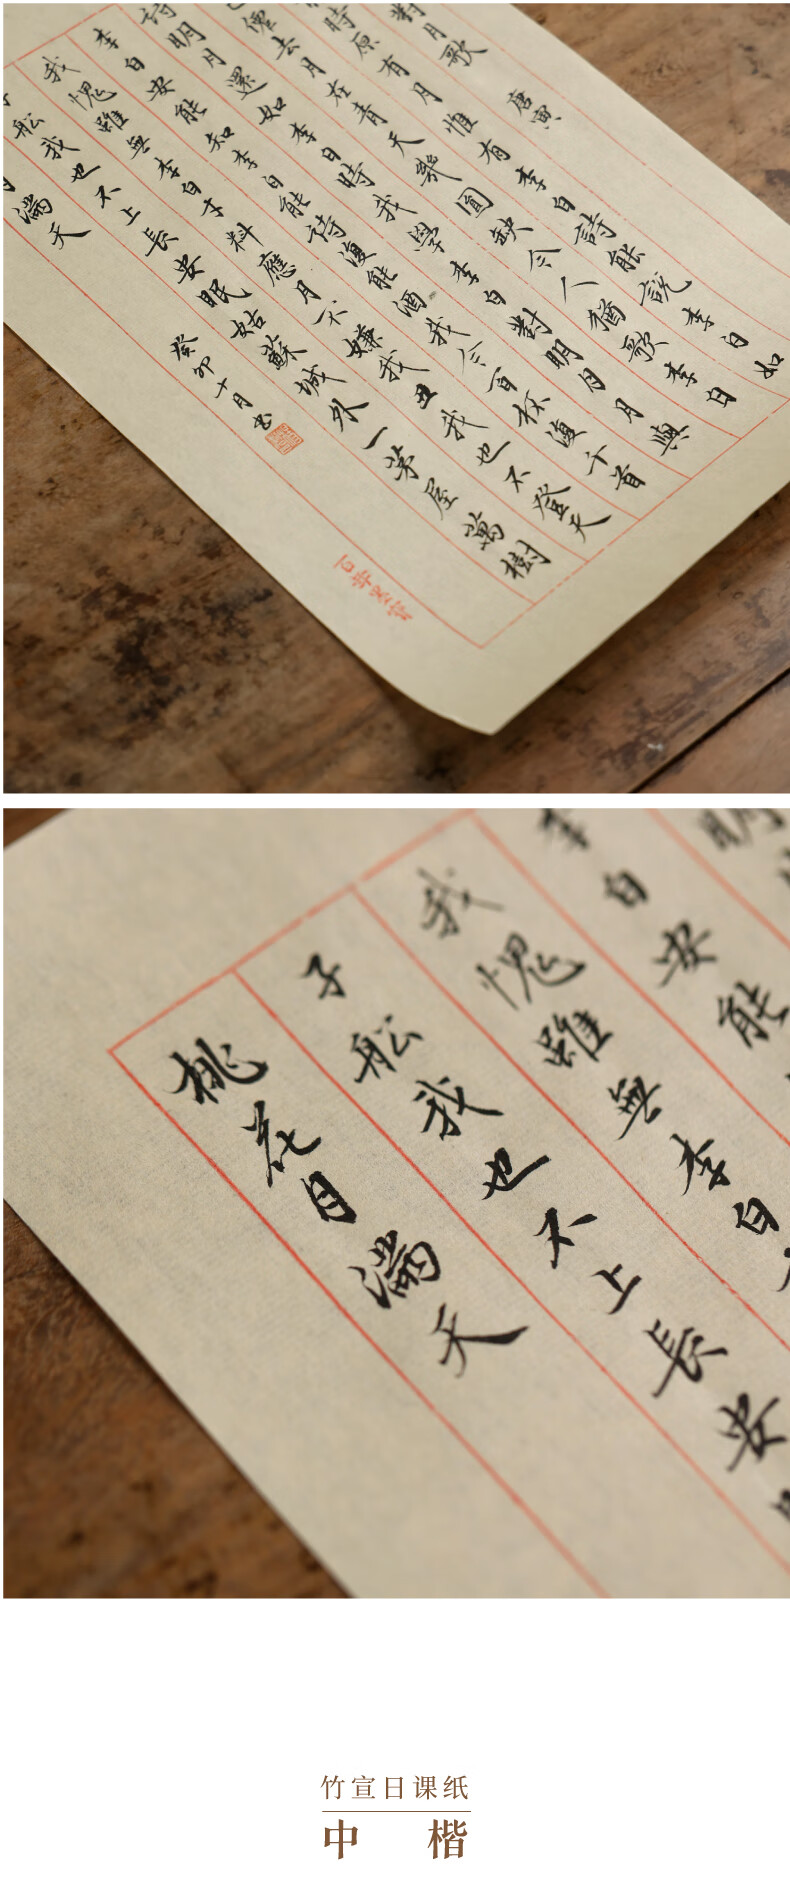 對月歌 唐寅
時原有月惟有李白詩能說李白如
僊去月在青天幾圓缺今人猶歌李白
詩明月還如李白時我學李白對明月月與
李白安能知李白能詩復能酒我今百杯復千首
我愧雖無李白才料應月不嫌我丑我也不登天
子船我也不上長安眠姑蘇城外一茅屋萬樹
月滿天
癸卯十月書
明
李白安能
我愧雖無李白
子船我也不上長安
桃花月滿天
竹宣日课纸
中楷